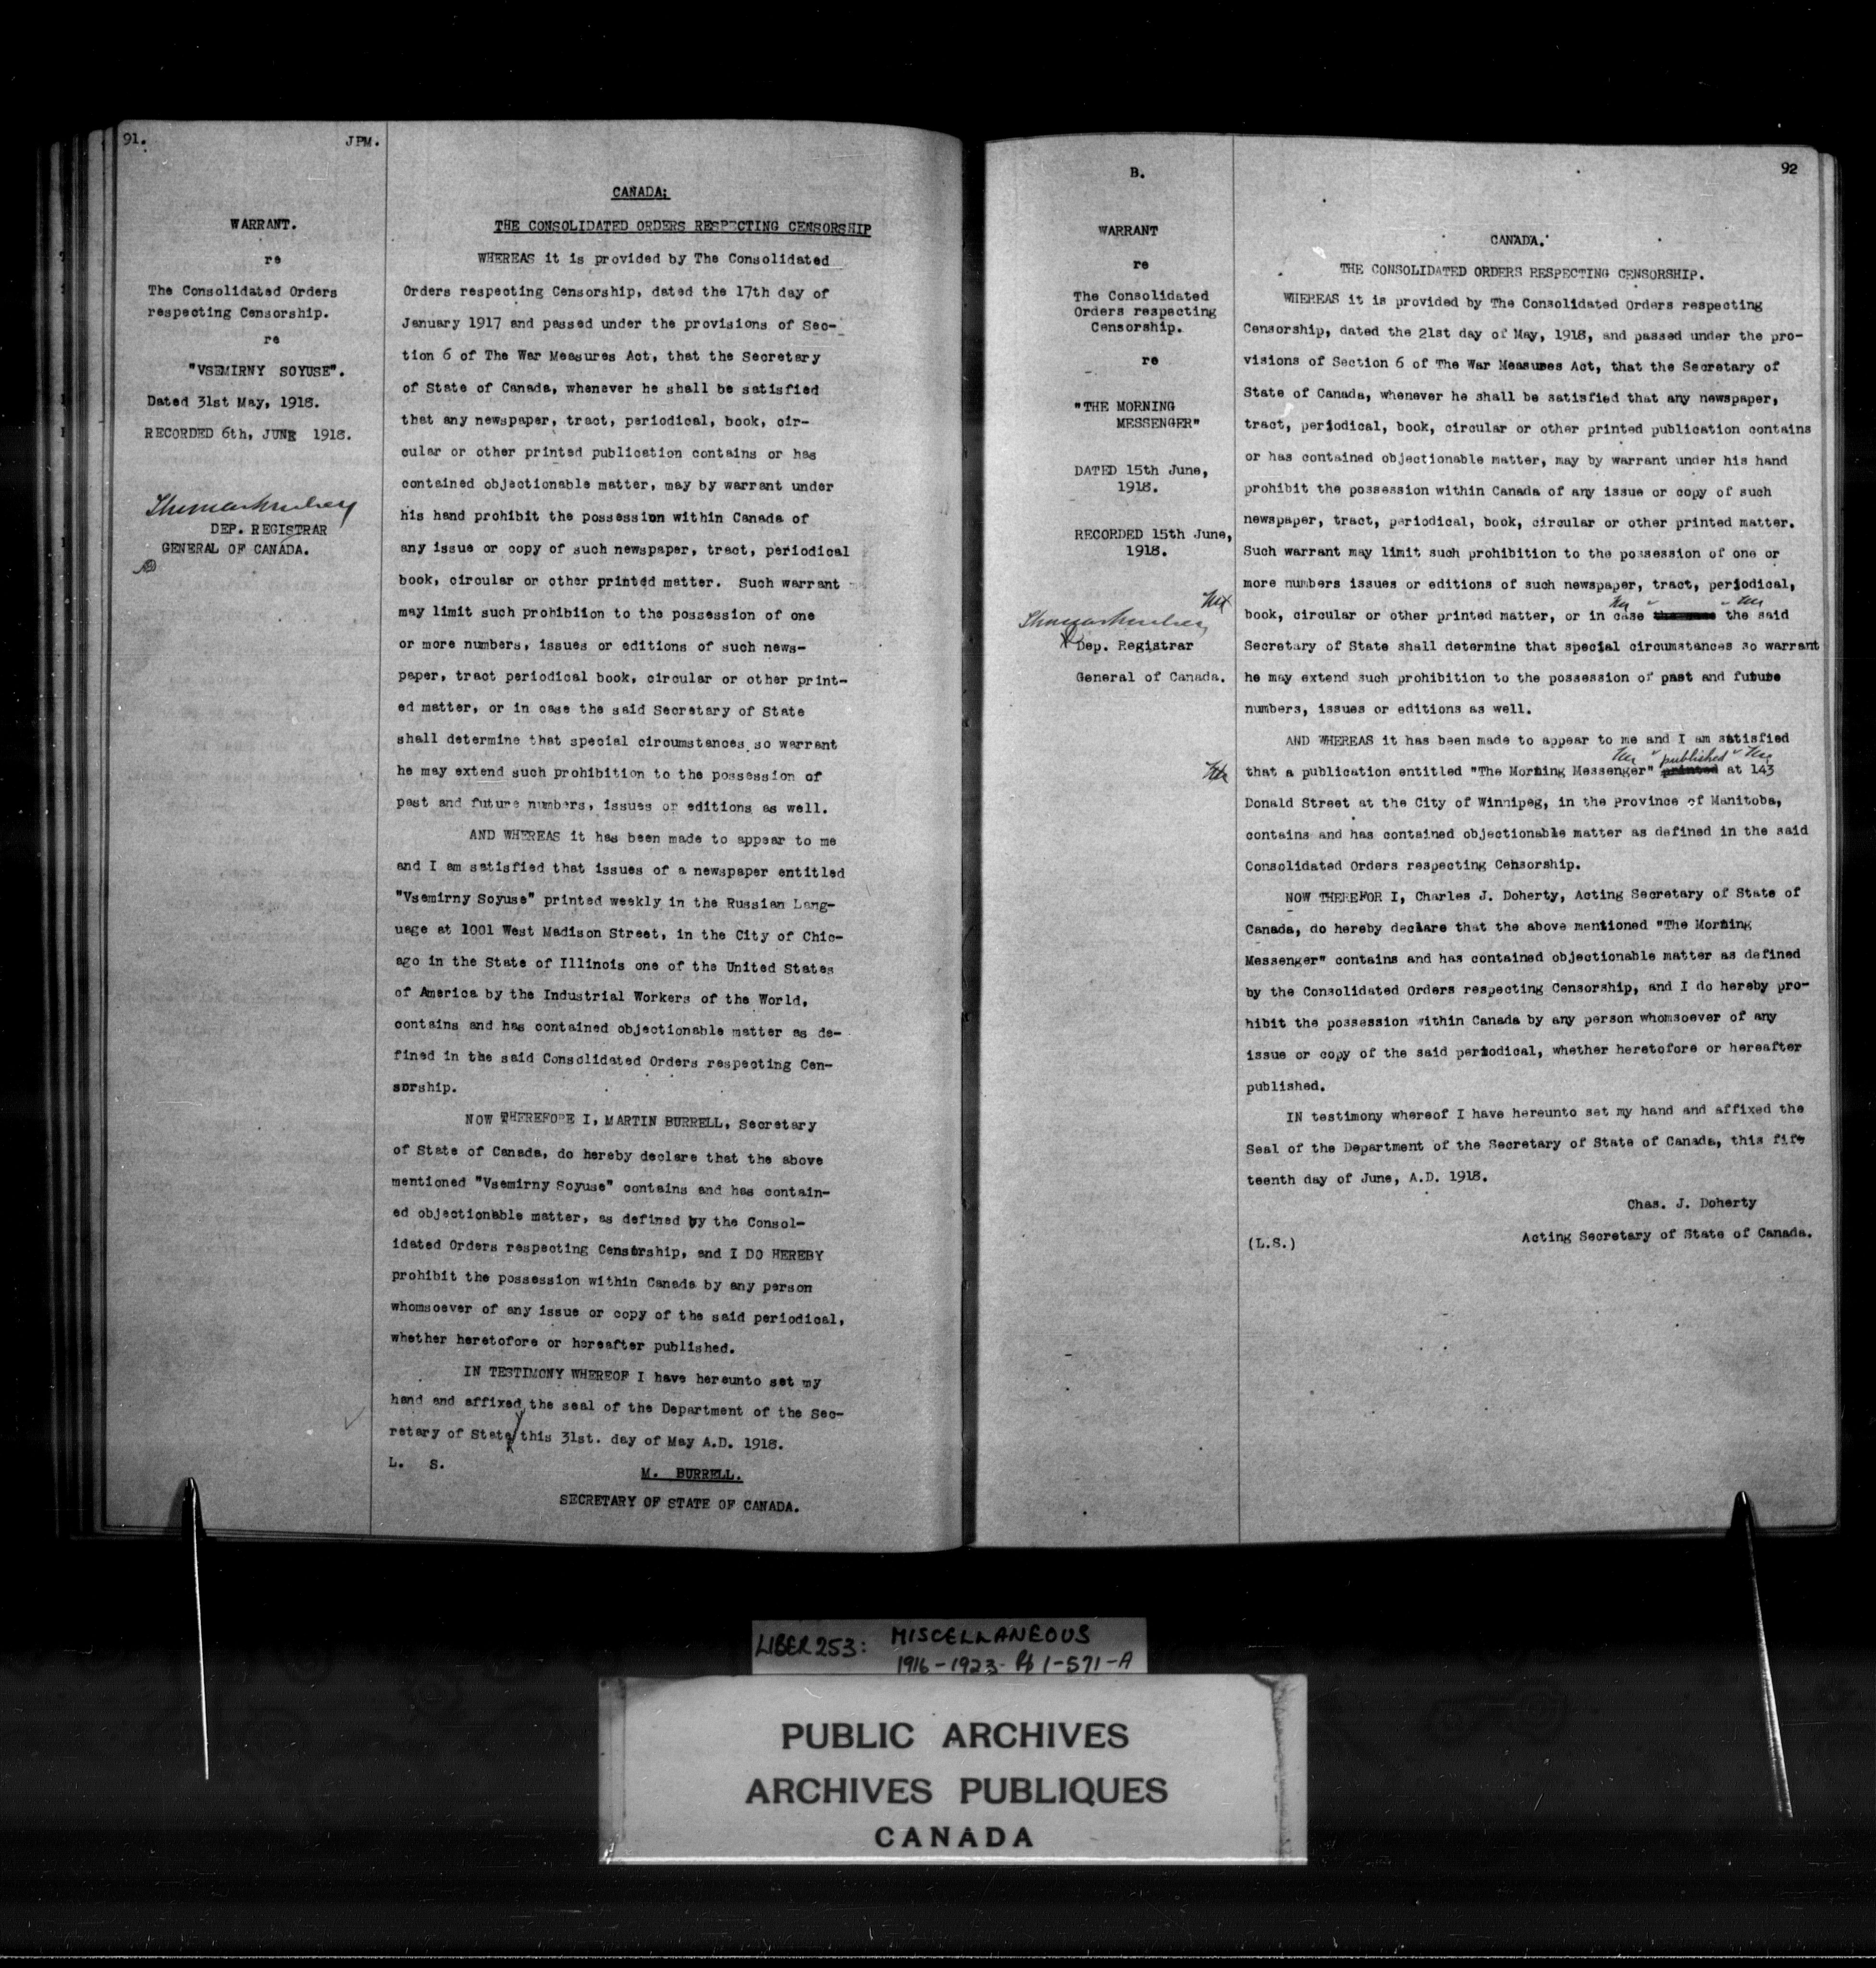 91.
JPM.
WARRANT.
re
The Consolidated Orders
respecting Censorship.
re
"VSEMIRNY SOYUSE".
Dated 31st May, 1918.
RECORDED 6th, JUNE 1918.
DEP. REGISTRAR
GENERAL OF CANADA.
CANADA:
THE CONSOLIDATED ORDERS RESPECTING CENSORSHIP
WHEREAS it is provided by The Consolidated
Orders respecting Censorship, dated the 17th day of
January 1917 and passed under the provisions of Sec-
tion 6 of The War Measures Act, that the Secretary
of State of Canada, whenever he shall be satisfied
that any newspaper, tract, periodical, book, cir-
cular or other printed publication contains or has
contained objectionable matter, may by warrant under
his hand prohibit the possession within Canada of
any issue or copy of such newspaper, tract, periodical
book, circular or other printed matter. Such warrant
may limit such prohibiion to the possession of one
or more numbers, issues or editions of such news-
paper, tract periodical book, circular or other print-
ed matter, or in case the said Secretary of State
shall determine that special circumstances so warrant
he may extend such prohibition to the possession of
past and future numbers, issues or editions as well.
AND WHEREAS it has been made to appear to me
and I am satisfied that issues of a newspaper entitled
"Vsemirny Soyuse" printed weekly in the Russian Lang-
uage at 1001 West Madison Street, in the City of Chic-
ago in the State of Illinois one of the United States
of America by the Industrial Workers of the World,
contains and has contained objectionable matter as de-
fined in the said Consolidated Orders respecting Cen-
sorship.
NOW THEREFORE I, MARTIN BURRELL, Secretary
of State of Canada, do hereby declare that the above
mentioned "Vsemirny Soyuse" contains and has contain-
ed objectionable matter, as defined by the Consol-
idated Orders respecting Censorship, and I DO HEREBY
prohibit the possession within Canada by any person
whomsoever of any issue or copy of the said periodical,
whether heretofore or hereafter published.
IN TESTIMONY WHEREOF I have hereunto set my
hand and affixed the seal of the Department of the Sec-
retary of State this 31st. day of May A.D. 1918.
L. S.
M. BURRELL.
SECRETARY OF STATE OF CANADA.
B.
92
WARRANT
re
The Consolidated
Orders respecting
Censorship.
re
"THE MORNING
MESSENGER"
DATED 15th June,
1918.
RECORDED 15th June,
1918.
Dep. Registrar
General of Canada.
CANADA.
THE CONSOLIDATED ORDERS RESPECTING CENSORSHIP.
WHEREAS it is provided by The Consolidated Orders respecting
Censorship, dated the 21st day of May, 1918, and passed under the pro-
visions of Section 6 of The War Measures Act, that the Secretary of
State of Canada, whenever he shall be satisfied that any newspaper,
tract, periodical, book, circular or other printed publication contains
or has contained objectionable matter, may by warrant under his hand
prohibit the possession within Canada of any issue or copy of such
newspaper, tract, periodical, book, circular or other printed matter.
Such warrant may limit such prohibition to the possession of one or
more numbers issues or editions of such newspaper, tract, periodical,
book, circular or other printed matter, or in case the said
Secretary of State shall determine that special circumstances so warrant
he may extend such prohibition to the possession of past and future
numbers, issues or editions as well.
AND WHEREAS it has been made to appear to me and I am satisfied
published
that a publication entitled "The Morning Messenger" printed at 143
Donald Street at the City of Winnipeg, in the Province of Manitoba,
contains and has contained objectionable matter as defined in the said
Consolidated Orders respecting Censorship.
NOW THEREFOR I, Charles J. Doherty, Acting Secretary of State of
Canada, do hereby declare that the above mentioned "The Morning
Messenger" contains and has contained objectionable matter as defined
by the Consolidated Orders respecting Censorship, and I do hereby pro-
hibit the possession within Canada by any person whomsoever of any
issue or copy of the said periodical, whether heretofore or hereafter
published.
IN testimony whereof I have hereunto set my hand and affixed the
Seal of the Department of the Secretary of State of Canada, this fif-
teenth day of June, A.D. 1918.
Chas. J. Doherty
(L.S.) Acting Secretary of State of Canada.
LIBER 253: MISCELLANEOUS
1916-1923- Pp 1-571-A
PUBLIC ARCHIVES
ARCHIVES PUBLIQUES
CANADA